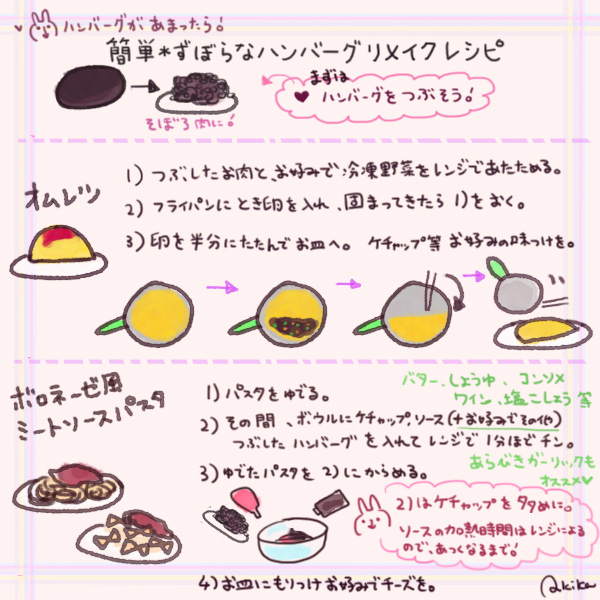 ハンバーグがあまったら!
簡単*ずぼらなハンバーグリメイクレシピ
まずは
ハンバーグをつぶそう!
そぼろ肉に!
オムレツ
1) つぶしたお肉と、お好みで冷凍野菜をレンジであたためる。
2) フライパンにとき卵を入れ、固まってきたら 1)をおく。
3) 卵を半分にたたんでお皿へ。 ケチャップ等 お好みの味つけを。
ボロネーゼ風
ミートソースパスタ
1) パスタをゆでる。
バター、しょうゆ、コンソメ
ワイン、塩こしょう 等
2) その間、ボウルにケチャップ、ソース(+お好みでその他)
つぶした ハンバーグ を入れて レンジで 1分ほどチン。
あらびきガーリックも
オススメ♥
3) ゆでたパスタを 2)にからめる。
2)はケチャップを多めに。
ソースの加熱時間はレンジによる
ので、あつくなるまで!
4) お皿にもりつけ お好みでチーズを。
Akika